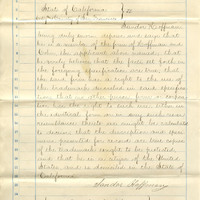 State of California } ss
Sandor Hoffman
being duly sworn deposes and says that
he is a member of the firm of Hoffman and
the applicant above named; that
he verily believes that the facts set forth in
the foregoing specification are true; that
the said firm has a right to the use of
the trademark described in said specifica-
tion; that no other person, firm or corpora-
tion has the right to such use, either in
the identical form or in any such near
resemblance thereto as might be calculated
to deceive; that the description and speci-
mens presented for record are true copies
of the trademark sought to be protected,
and that he is a citizen of the United
States and is domiciled in the State of
California.
Sandor Hoffman